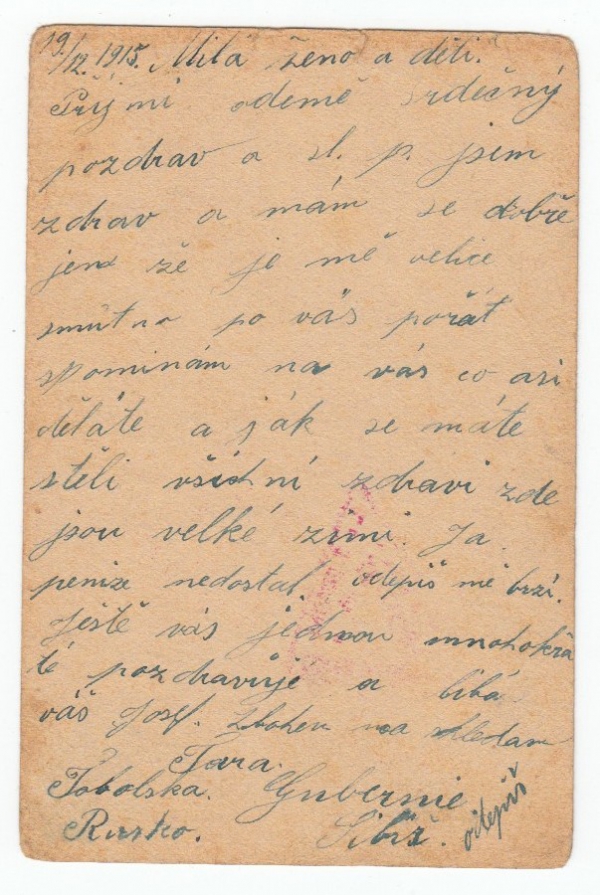 19./12. 1915. Milá ženo a děti.
Příjmi odemě srdečný
pozdrav a sl. p. jsem
zdrav a mám se dobře
jen že je mě velice
smutno po vás pořát
spominám na vás co asi
děláte a ják se máte
stěli všichní zdravi zde
jsou velké zimi. Ja
penize nedostal odepiš mě brzi.
Ještě vás jednou mnohokrá
té pozdravuje a líbá
váš Josef. Zbohem na shledam
Tara.
Tobolska. Gubernie
Rusko. Sibiř. odepiš